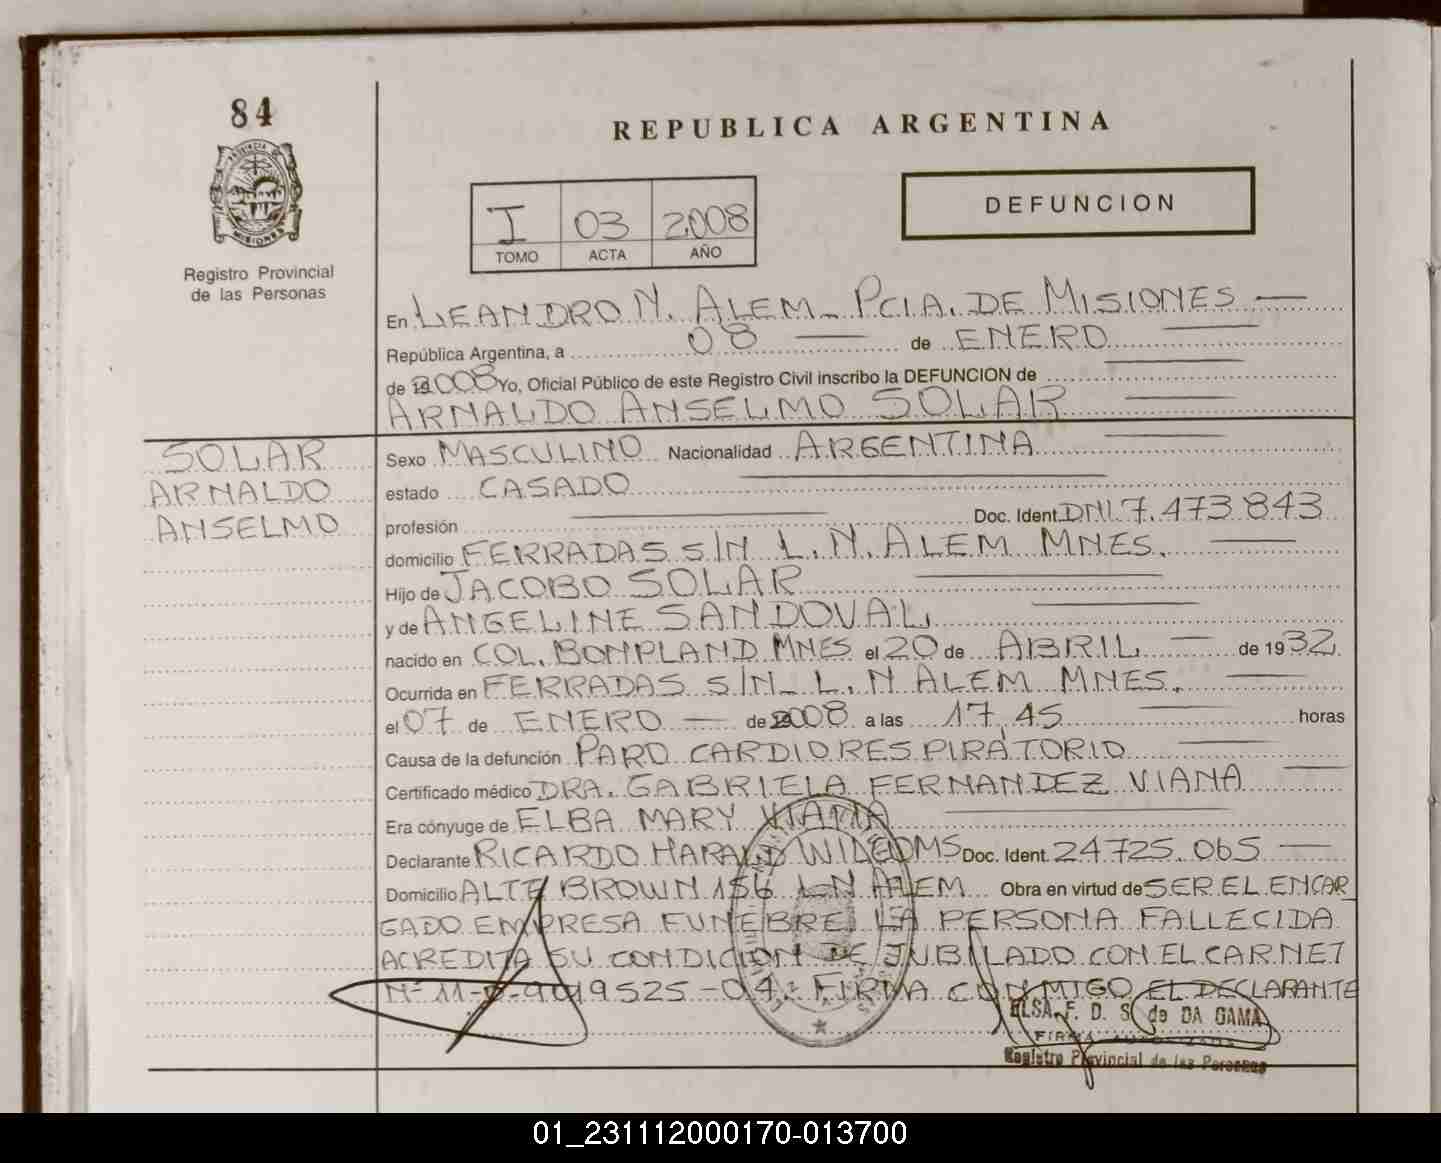 84
PROVINCIA DE
MISIONES
Registro Provincial
de las Personas
REPUBLICA ARGENTINA
I 03 2008
TOMO ACTA AÑO
DEFUNCION
En LEANDRO N. ALEM - PCIA. DE MISIONES
República Argentina, a 08 de ENERO
de 2008 Yo, Oficial Público de este Registro Civil inscribo la DEFUNCION de
ARNALDO ANSELMO SOLAR
SOLAR
ARNALDO
ANSELMO
Sexo MASCULINO Nacionalidad ARGENTINA
estado CASADO
profesión Doc. Ident. DNI 7.473.843
domicilio FERRADAS S/N L.N. ALEM MNES.
Hijo de JACOBO SOLAR
y de ANGELINE SANDOVAL
nacido en COL. BONPLAND MNES el 20 de ABRIL de 1932
Ocurrida en FERRADAS S/N - L.N ALEM MNES.
el 07 de ENERO de 2008 a las 17,45 horas
Causa de la defunción PARO CARDIORESPIRATORIO
Certificado médico DRA. GABRIELA FERNANDEZ VIANA
Era cónyuge de ELBA MARY VIANA
Declarante RICARDO HARALD Doc. Ident. 24.725.065
Domicilio ALTE BROWN 156 L N ALEM Obra en virtud de SER EL ENCAR
GADO EMPRESA FUNEBRE LA PERSONA FALLECIDA
ACREDITA SU CONDICION DE JUBILADO CON EL CARNET
Nº 11-0-9019525-04: FIRMA CONMIGO EL DECLARANTE
ELSA F. D. S. de DA GAMA
FIRMA AUTORIZADA
Registro Provincial de las Personas
01_231112000170-013700